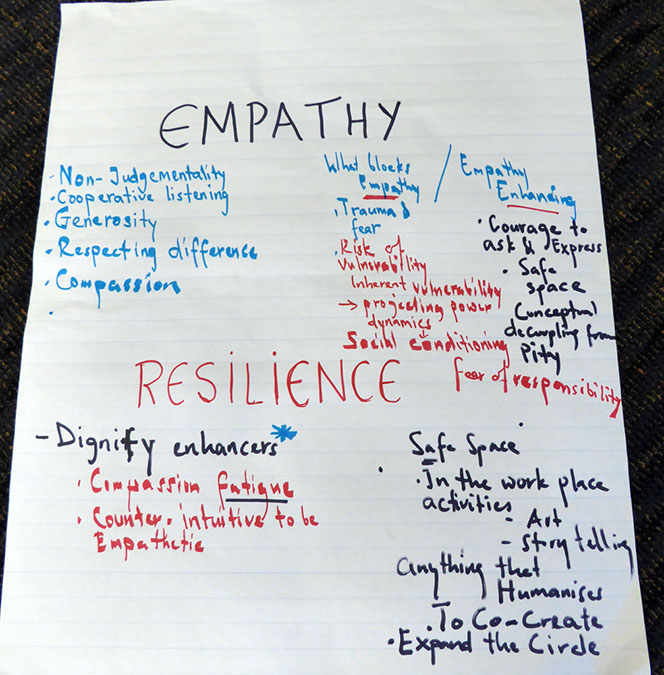 EMPATHY
- Non-Judgementality
• Cooperative listening
• Generosity
• Respecting difference
• Compassion
•
What blocks
Empathy
• Trauma &
fear
• Risk of
vulnerability
Inherent vulnerability
→ projecting power
dynamics
Social conditioning
/
Empathy
Enhancing
• Courage to
ask & Express
• Safe
space
Conceptual
decoupling from
Pity
fear of responsibility
RESILIENCE
- Dignify enhancers*
• Compassion fatigue
• Counter-intuitive to be
Empathetic
Safe Space
• In the work place
activities
- Art
- Story telling
anything that
Humanises
• To Co-Create
• Expand the Circle